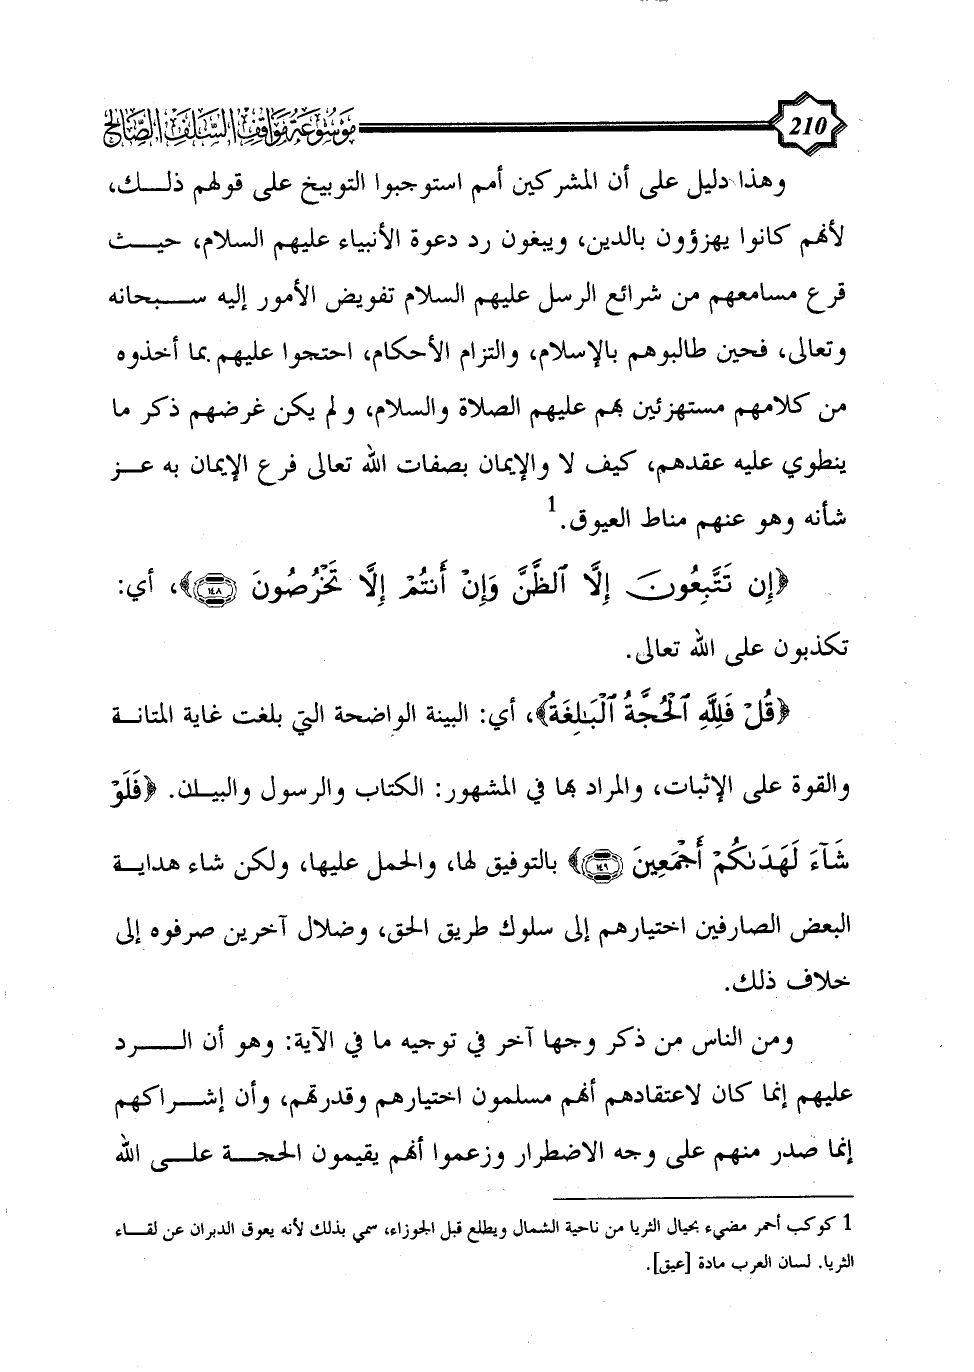 210 موسوعة مواقف السلف الصالح
وهذا دليل على أن المشركين أمم استوجبوا التوبيخ على قولهم ذلـــك،
لأنهم كانوا يهزؤون بالدين، ويبغون رد دعوة الأنبياء عليهم السلام، حيـــث
قرع مسامعهم من شرائع الرسل عليهم السلام تفويض الأمور إليه ســـبحانه
وتعالى، فحين طالبوهم بالإسلام، والتزام الأحكام، احتجوا عليهم بما أخذوه
من كلامهم مستهزئين بهم عليهم الصلاة والسلام، ولم يكن غرضهم ذكر ما
ينطوي عليه عقدهم، كيف لا والإيمان بصفات الله تعالى فرع الإيمان به عـــز
شأنه وهو عنهم مناط العيوق.1
﴿إِن تَتَّبِعُونَ إِلَّا ٱلظَّنَّ وَإِنْ أَنتُمْ إِلَّا تَخْرُصُونَ ١٤٨﴾، أي:
تكذبون على الله تعالى.
﴿قُلْ فَلِلَّهِ ٱلْحُجَّةُ ٱلْبَٰلِغَةُ﴾، أي: البينة الواضحة التي بلغت غاية المتانـــة
والقوة على الإثبات، والمراد بها في المشهور: الكتاب والرسول والبيـــان. ﴿فَلَوْ
شَآءَ لَهَدَىٰكُمْ أَجْمَعِينَ ١٤٩﴾ بالتوفيق لها، والحمل عليها، ولكن شاء هدايـــة
البعض الصارفين اختيارهم إلى سلوك طريق الحق، وضلال آخرين صرفوه إلى
خلاف ذلك.
ومن الناس من ذكر وجها آخر في توجيه ما في الآية: وهو أن الـــــرد
عليهم إنما كان لاعتقادهم أنهم مسلمون اختيارهم وقدرتهم، وأن إشـــراكهم
إنما صدر منهم على وجه الاضطرار وزعموا أنهم يقيمون الحجـــة علـــى الله
1 كوكب أحمر مضيء بحيال الثريا من ناحية الشمال ويطلع قبل الجوزاء، سمي بذلك لأنه يعوق الدبران عن لقـــاء
الثريا. لسان العرب مادة [عيق].